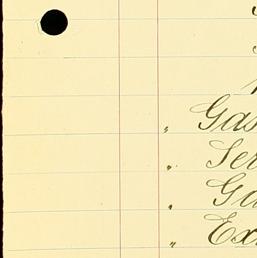 " Gas
" Ser
" Ga
" Ex